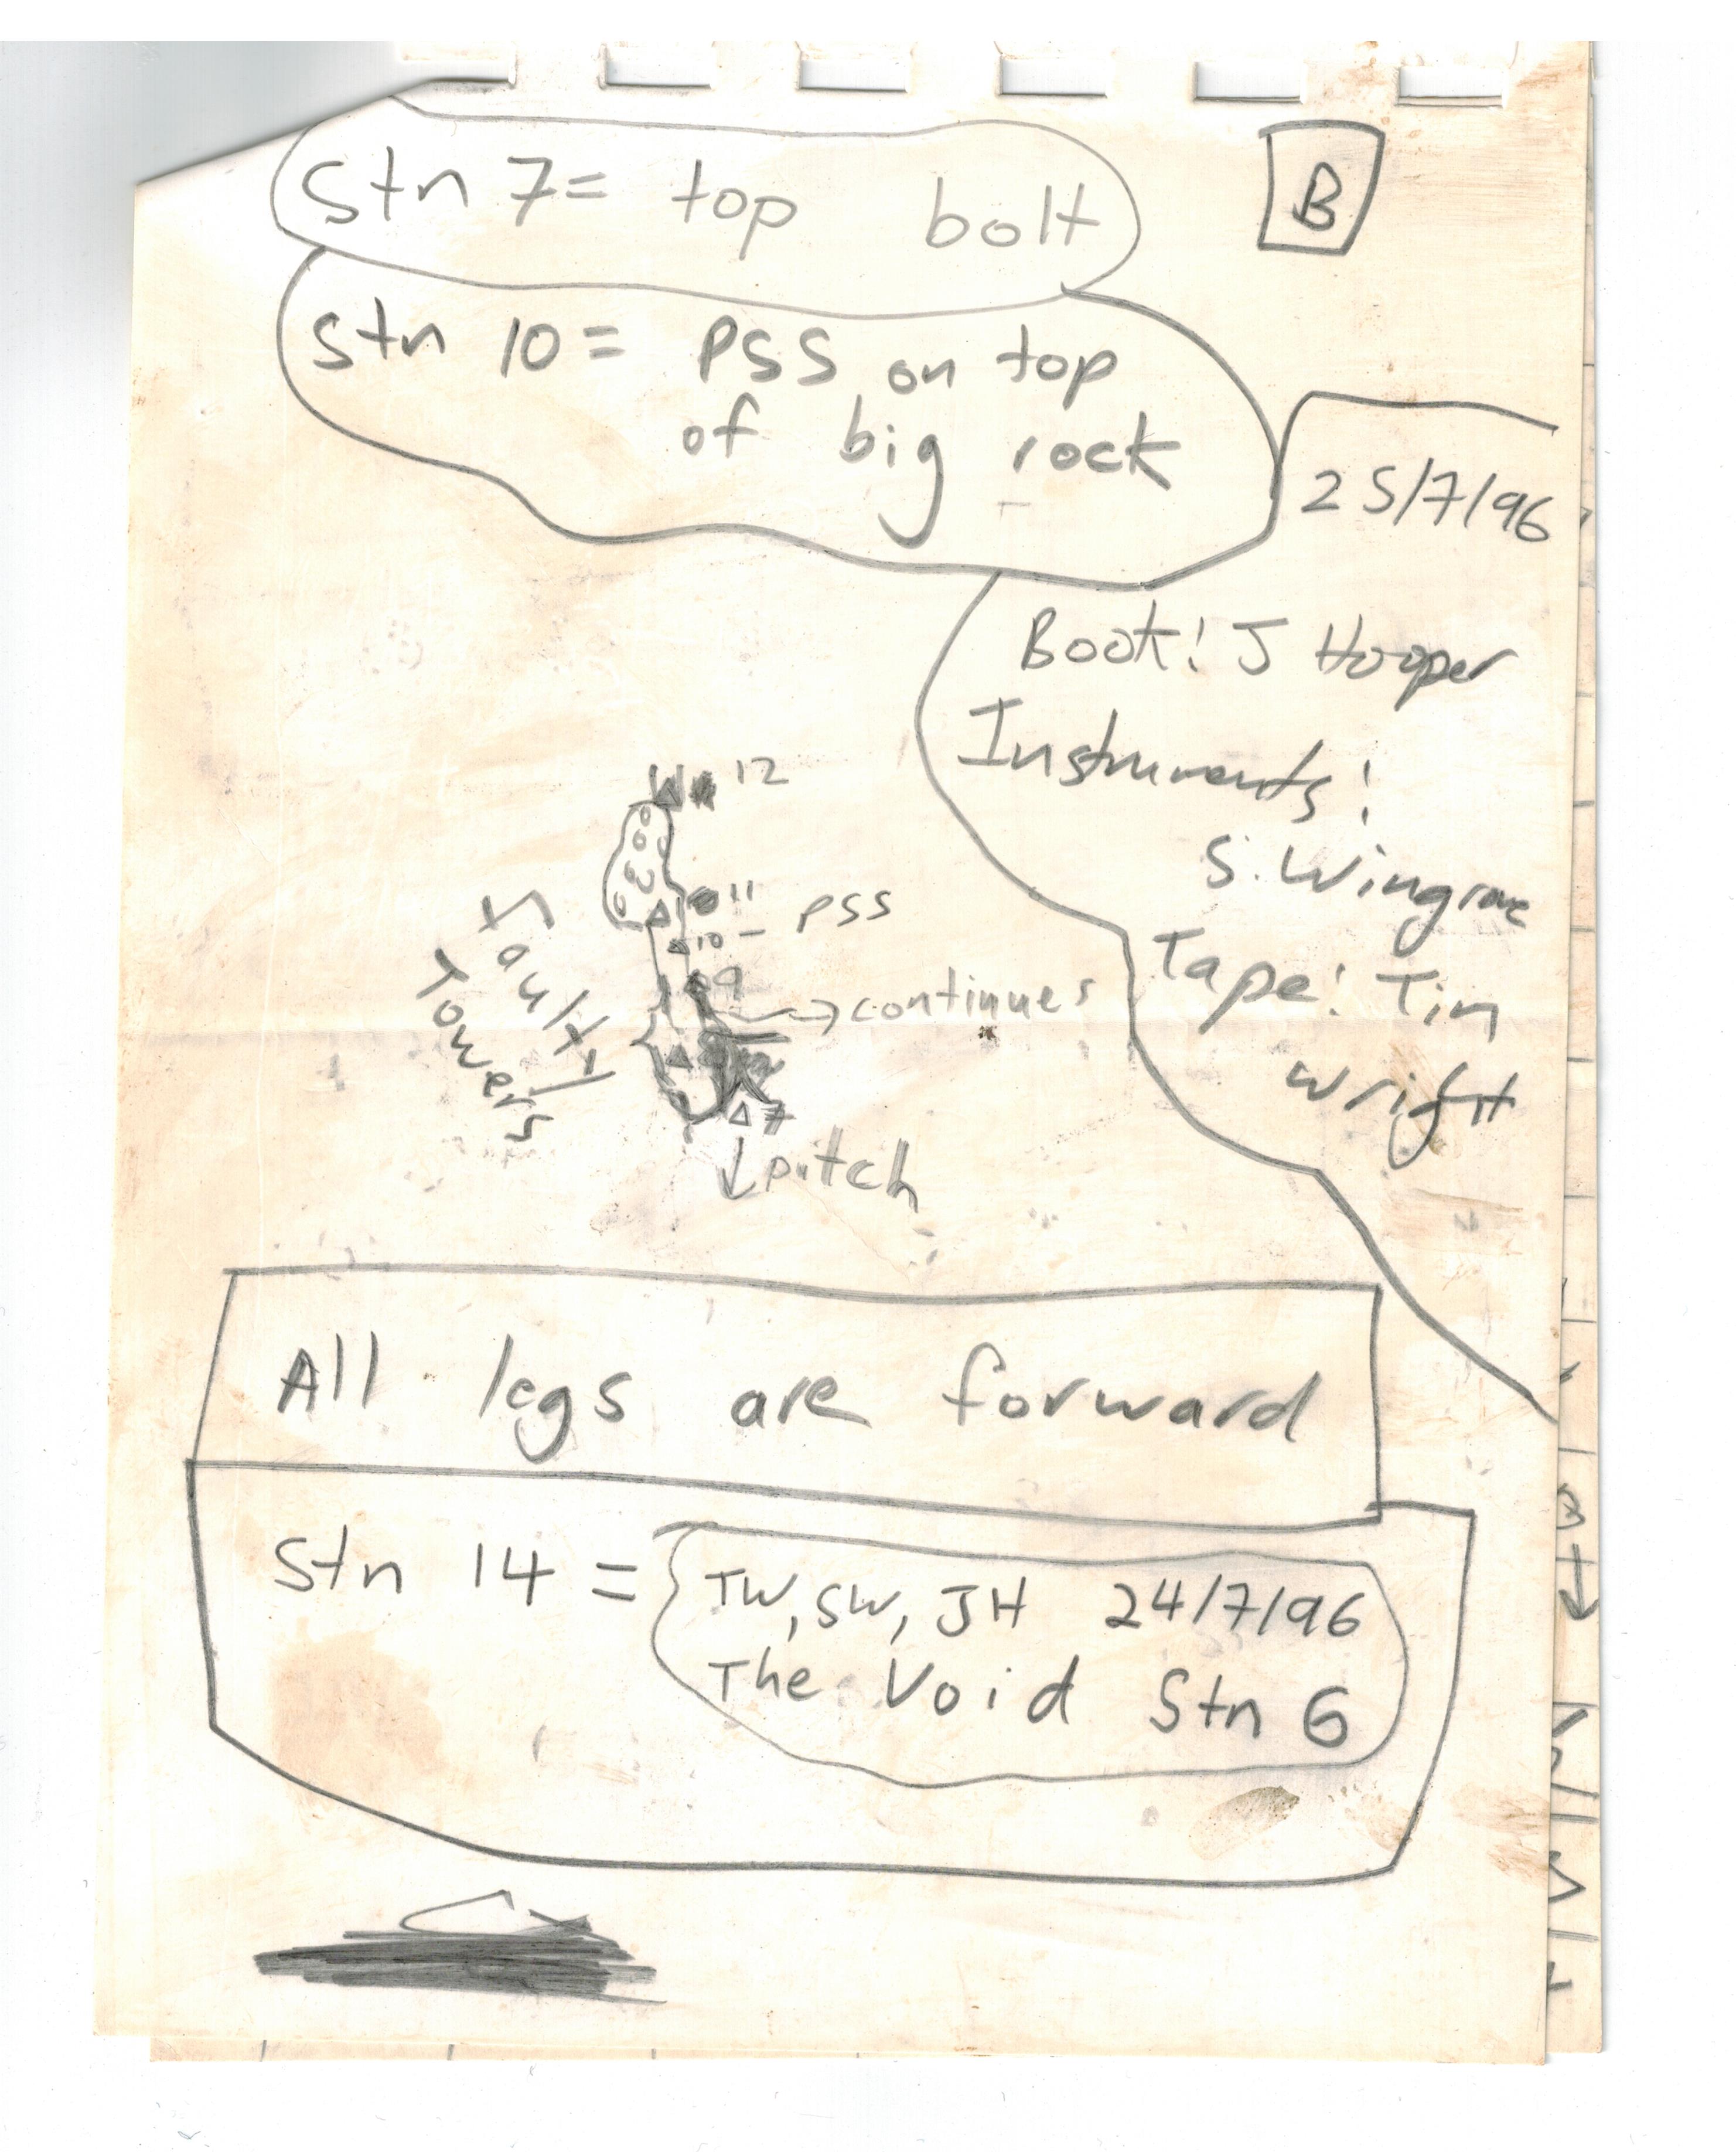 Stn 7 = top bolt
B
Stn 10 = PSS on top
of big rock
25/7/96
Book: J Hooper
Instruments:
S. Wingrove
Tape: Tim
Wright
12
11
10 - PSS
9
→ continues
Faulty
Towers
7
↓ pitch
All legs are forward
Stn 14 = TW, SW, JH 24/7/96
The Void Stn 6